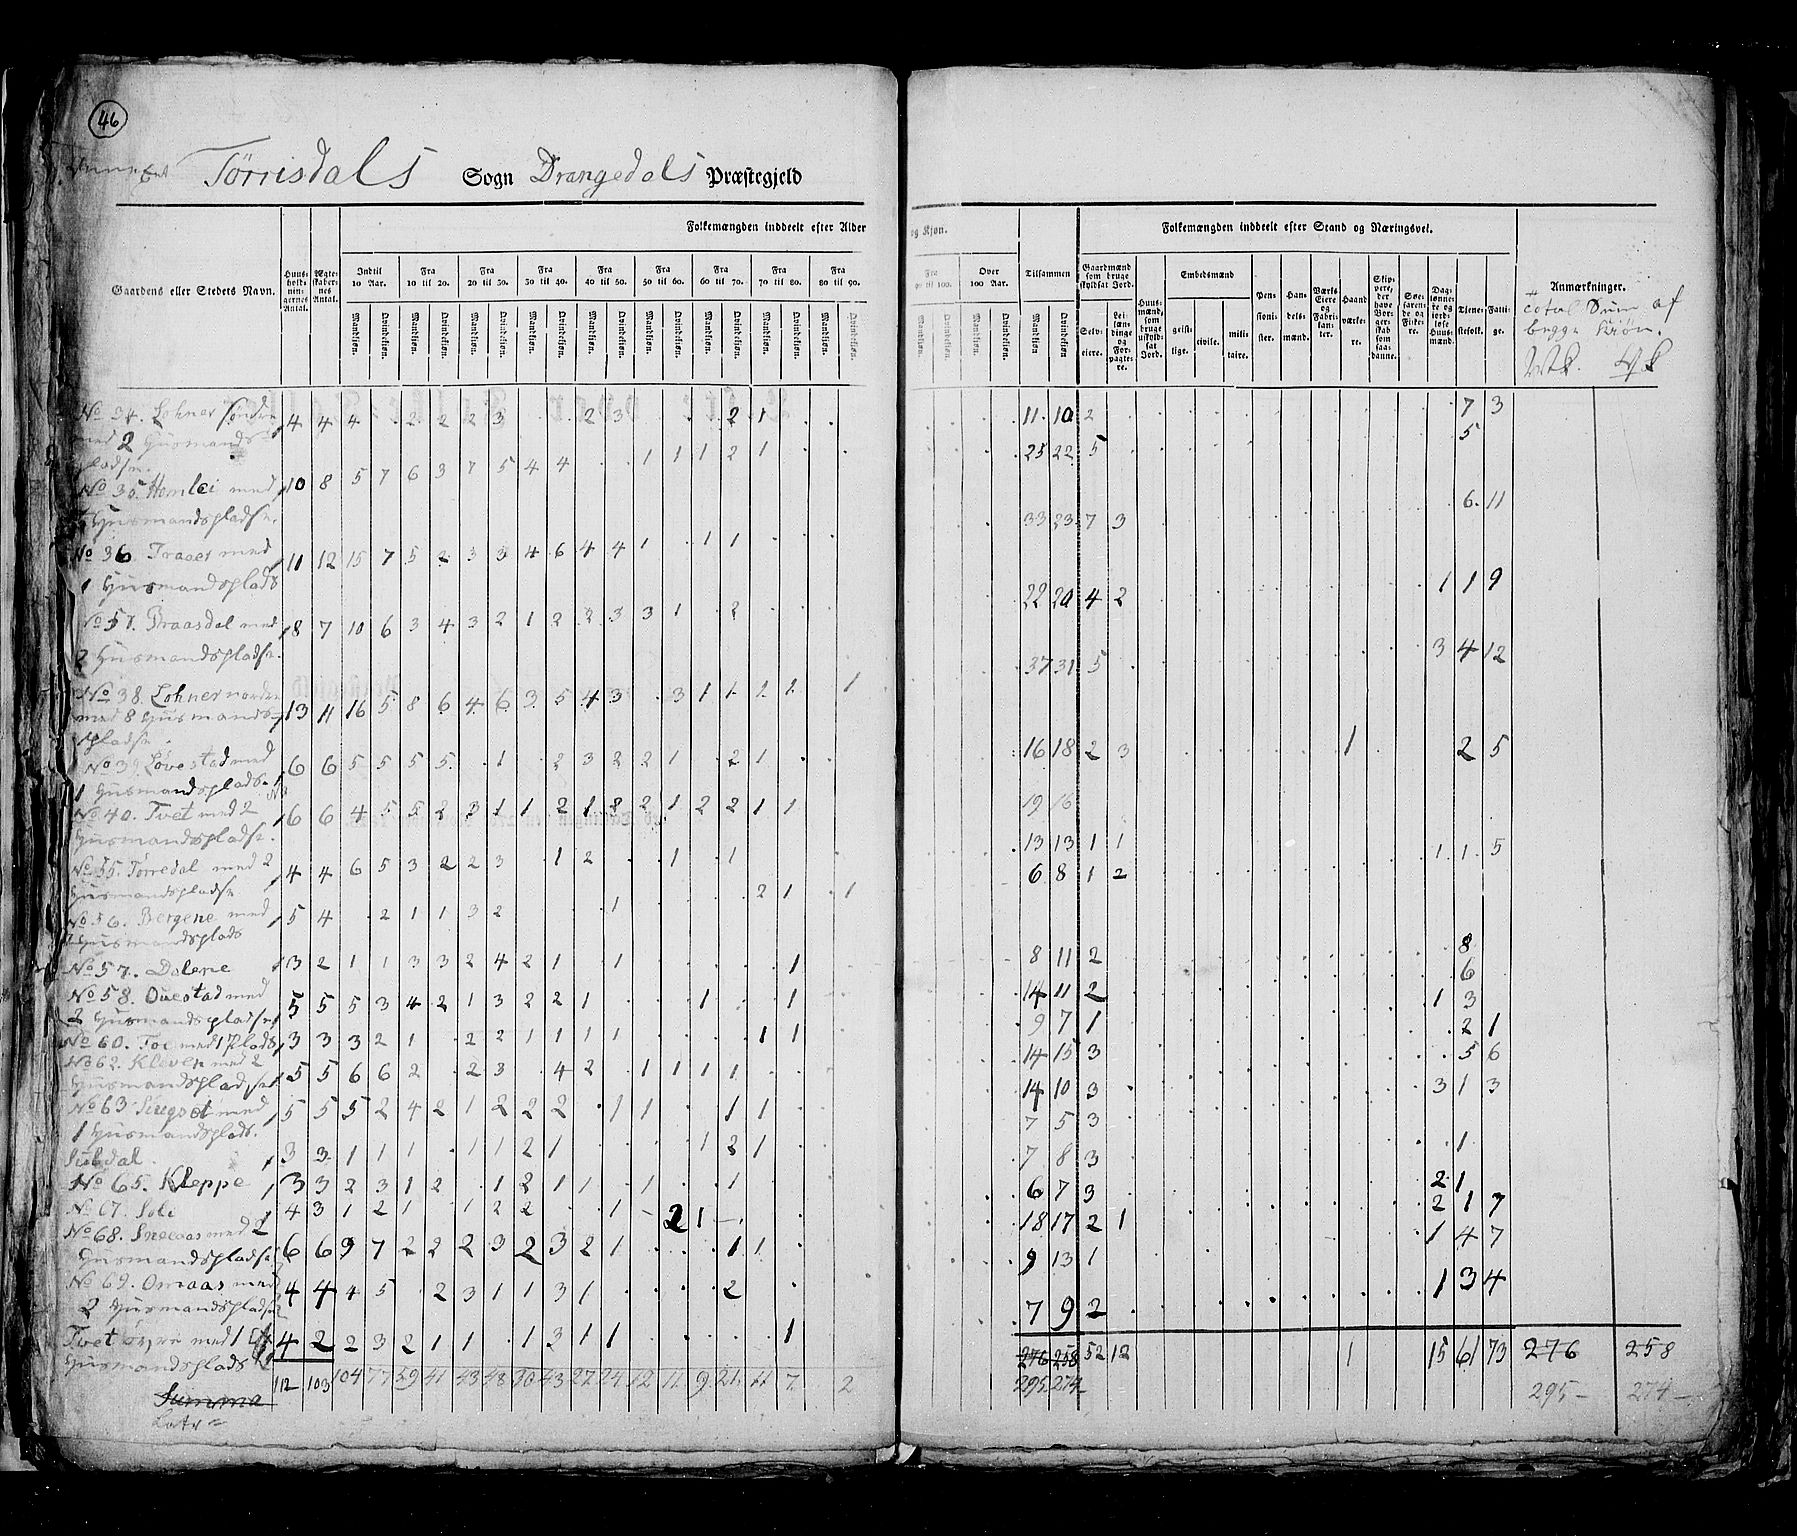 46
Annexet Tørrisdals Sogn Drangedals Præstegjeld
Gaardens eller Stedets Navn.
Huusholdningernes Antal.
Ægteskabernes Antal.
Folkemængden inddeelt efter Alder og Kjøn.
Indtil 10 Aar. Fra 10 til 20. Fra 20 til 30. Fra 30 til 40. Fra 40 til 50. Fra 50 til 60. Fra 60 til 70. Fra 70 til 80. Fra 80 til 90. Fra 90 til 100. Over 100 Aar. Tilsammen
Mandkjøn. Qvindekjøn.
Folkemængden inddeelt efter Stand og Næringsvei.
Gaardmænd som bruge skyldsat Jord.
Selveiere. Leilændinge og Forpagtere.
Huusmænd, som bruge uskyldsat Jord.
Embedsmænd
geistlige. civile. militaire.
Pensionister.
Handelsmænd.
Værks Eiere og Fabrikanter.
Haandværkere.
Skippere, der have Borgerskab som saadanne.
Søefarende og Fiskere.
Daglønnere og jordløse Huusmænd.
Tjenestefolk.
Fattige.
Anmærkninger.
total Sum af
begge Kiøn.
Mk. Qk
No 34. Lohner søndre 4 4 4 . 2 2 2 3 . . 2 3 . . . 2 1 . . 11 10 2 7 3
med 2 Huusmands
pladse. 5
No 35. Homlei med 10 8 5 7 6 3 7 5 4 4 . . 1 1 1 2 1 . . 25 22 5
Huusmandspladse. 6 11
No 36. Traaet med 11 12 15 7 5 2 3 3 4 6 4 4 1 . 1 1 . . . 33 23 7 3
1 Huusmandsplads 1 1 9
No 37. Braasdal med 8 7 10 6 3 4 3 2 1 2 2 3 3 1 . 2 . . . 22 20 4 2
2 Huusmandspladse. 3 4 12
No 38. Lohner nordre 13 11 16 5 8 6 4 6 3 5 4 3 . 3 1 1 1 1 . 1 37 31 5
med 8 Huusmands
pladse
No 39. Lovestad med 6 6 5 5 5 5 . 1 . 2 3 2 2 1 . 2 1 . . 16 18 2 3 1 2 5
1 Huusmandsplads.
No 40. Tvet med 2 6 6 4 5 5 2 3 1 1 2 1 8 2 1 2 2 1 1 19 16
Huusmandspladse.
No 55. Tørredal med 2 4 4 6 5 3 2 2 3 . 1 2 . . 1 . 1 13 13 1 1 1 1 5
Huusmandspladse
No 56. Bergene med 5 4 . 2 1 1 3 2 . . . 1 2 1 . 1 6 8 1 2
Huusmandsplads
No 57. Dalene 3 2 1 1 3 3 2 4 2 1 . 1 . . . . . 1 8 11 2 8
No 58. Ouestad med 5 5 5 3 4 2 1 3 2 2 1 . . . 1 . . 1 14 11 2 1 3
2 Huusmandspladse
No 60. Toe med 1 Plads 3 3 3 2 1 . 2 2 1 1 1 1 . . . . 1 1 9 7 1 2 1
No 62. Kleven med 2 5 5 6 6 2 . 2 3 . 4 2 . 1 1 1 1 . . 14 15 3 5 6
Huusmandspladse
No 63 med 5 5 5 2 4 2 1 2 2 2 . 1 1 . . 1 1 . 14 10 3 3 1 3
1 Huusmandsplads.
Subdal. 3 3 1 1 1 . 1 1 2 1 . . . . 1 2 1 . 7 5 3 1
No 65. Kleppe 3 3 2 3 1 2 . 1 2 1 1 . 1 . . 1 . . 7 8 3 2 1
No 67. 4 3 1 2 1 . 1 2 2 . . 1 – 2 1 – . 6 7 3 2 1 7
No 68. med 2 6 6 9 7 2 2 2 3 2 3 2 1 . . . 1 1 . 18 17 2 1 1 4 7
Huusmandspladse
No 69. Omaas med 4 4 4 5 . 2 3 1 1 3 1 . . . . 2 . . 9 13 1 1 3 4
2 Huusmandspladse
Tvet øvre med 1 4 2 2 3 2 1 1 . 1 3 1 1 . . . . . 1 7 9 2
Huusmandsplads
Summa 112 103 104 77 59 41 43 48 30 43 27 24 12 11 9 21 11 7 2 276 258 52 12 1 15 61 73 276 258
Latr 295 274 295 – 274 –